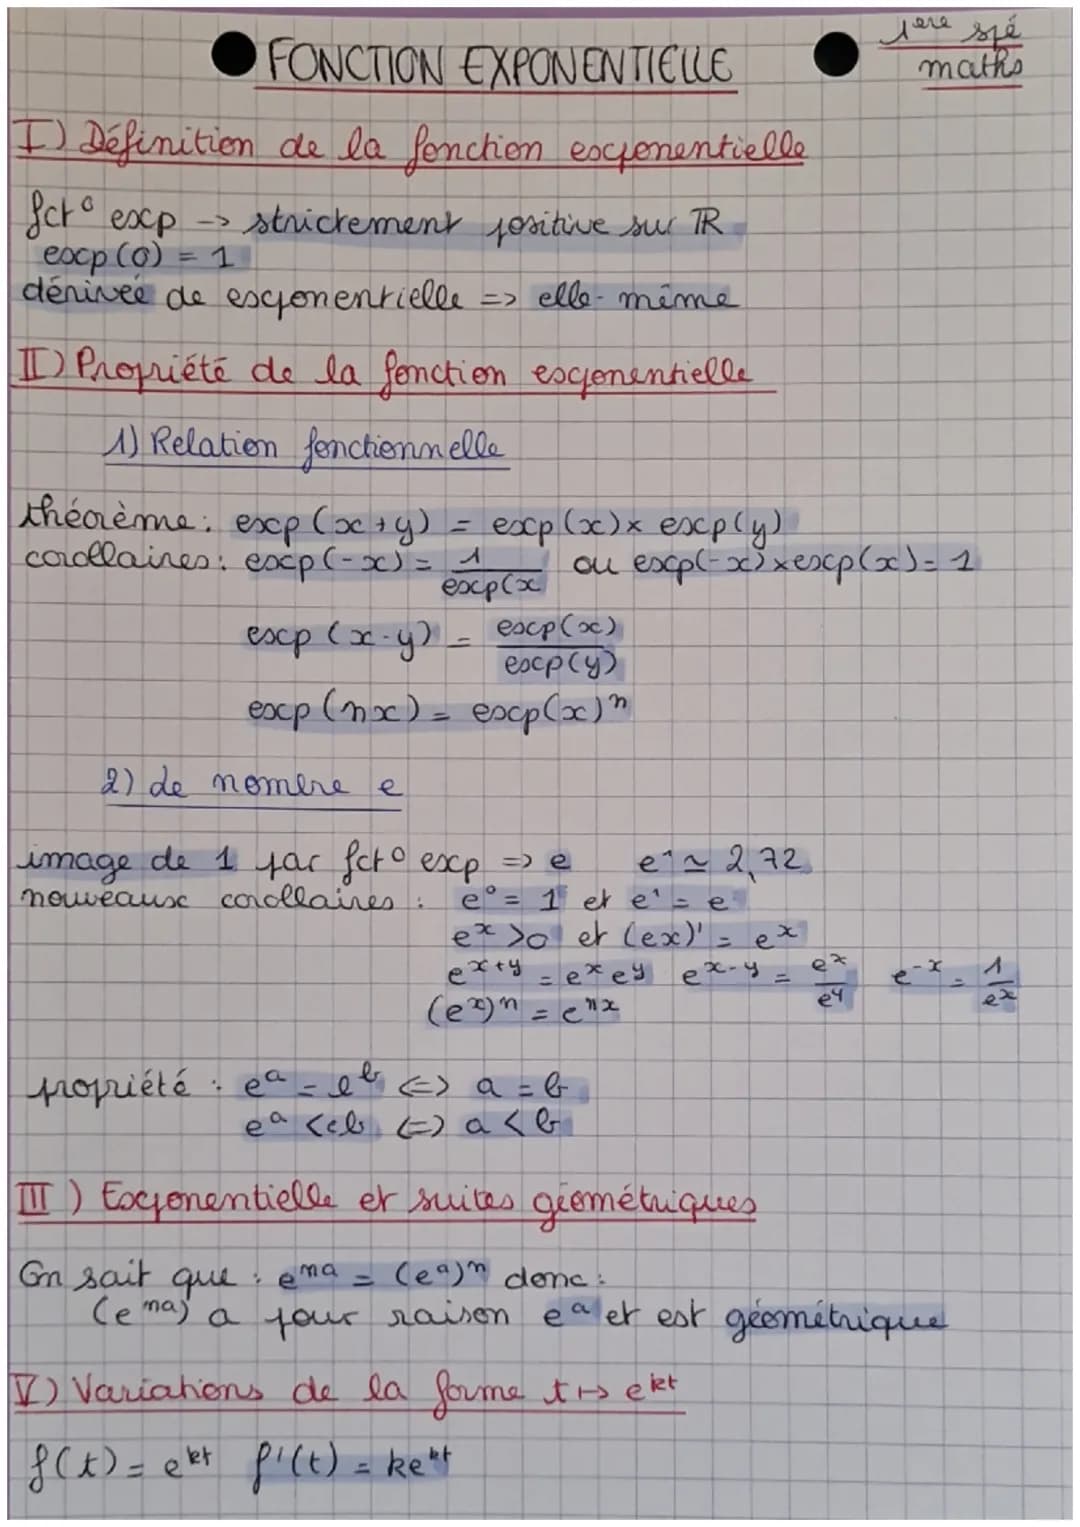 1ere spé
maths
FONCTION EXPONENTIELLE
I) Définition de la fonction exponentielle
fct° exp -> strictement positive sur ℝ
exp(0) = 1
dérivée de exponentielle => elle-même
II) Propriété de la fonction exponentielle
1) Relation fonctionnelle
théorème: exp(x+y) = exp(x)×exp(y)
corollaires: exp(-x) = 1/exp(x ou exp(-x)×exp(x) = 1
exp(x-y) = exp(x)/exp(y)
exp(nx) = exp(x)ⁿ
2) de nombre e
image de 1 par fct° exp => e e¹ ≃ 2,72
nouveaux corollaires : e⁰ = 1 et e¹ = e
eˣ >0 et (ex)' = eˣ
e^x+y = eˣ e^y e^x-y = eˣ/e^y e⁻ˣ = 1/eˣ
(eˣ)ⁿ = eⁿˣ
propriété : e^a = e^b <=> a = b
e^a < eb <=> a < b
III) Exponentielle et suites géométriques
On sait que : e^na = (e^a)ⁿ donc :
(e^na) a pour raison e^a et est géométrique
V) Variations de la forme t ↦ e^kt
f(t) = e^kt f'(t) = ke^kt